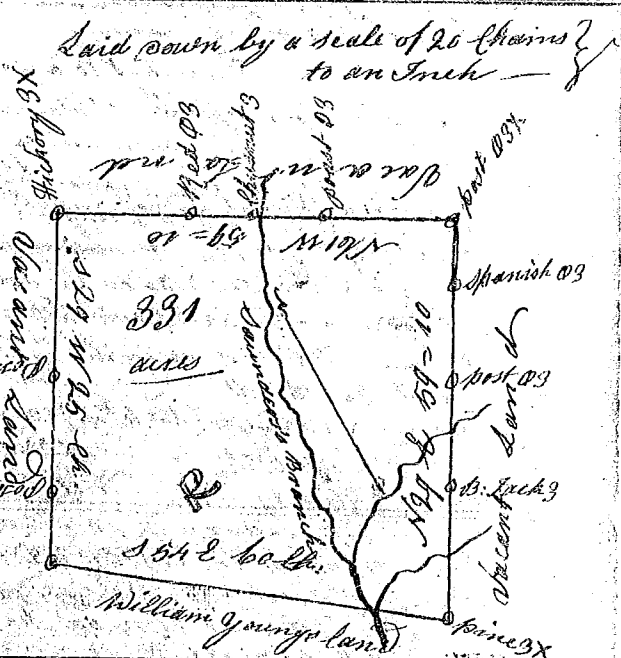 Laid down by a scale of 20 Chains
to an Inch —
Hickory 3X
Red O3
Chesnut 3
post O3
post O3X
Vacant Land
N61W 59=10
Spanish O3
post O3
B. Jack 3
N29E 59=10
Vacant Land
pine 3X
331
acres
S29W 55 Ch.
Vacant Land
Saunders's Branch
S54E 60 Ch.
William Youngs land